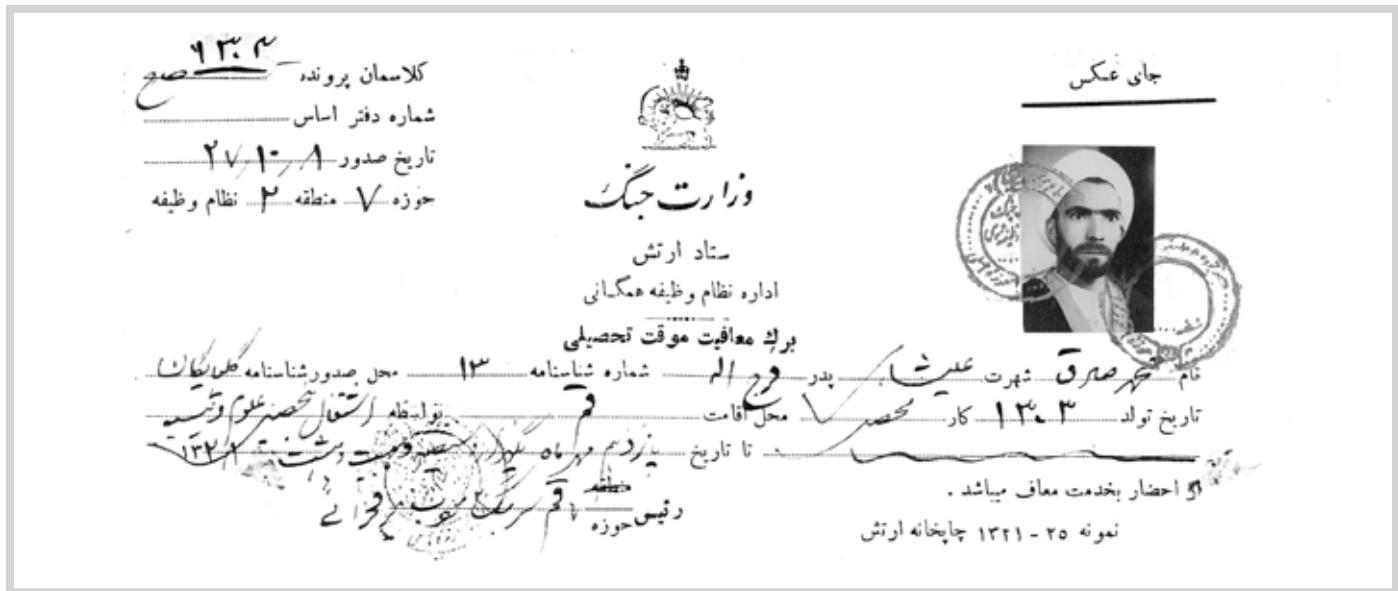 جای عکس
کلاسمان پرونده ۶۳۰۴
شماره دفتر اساس
تاریخ صدور ۲۷/۱۰/۸
حوزه ۷ منطقه ۲ نظام وظیفه
وزارت جنگ
ستاد ارتش
اداره نظام وظیفه همگانی
برگ معافیت موقت تحصیلی
نام محمد صادق شهرت پدر فرج اله شماره شناسنامه ۱۳ محل صدور شناسنامه گلپایگان
تاریخ تولد ۱۳۰۳ کار محصل محل اقامت قم بواسطه اشتغال بتحصیل علوم دینیه
تا تاریخ یازدهم مهر ماه یکهزار و سیصد و بیست و هشت
از احضار بخدمت معاف میباشد .
رئیس منطقه حوزه قم
نمونه ۲۵ - ۱۳۲۱ چاپخانه ارتش